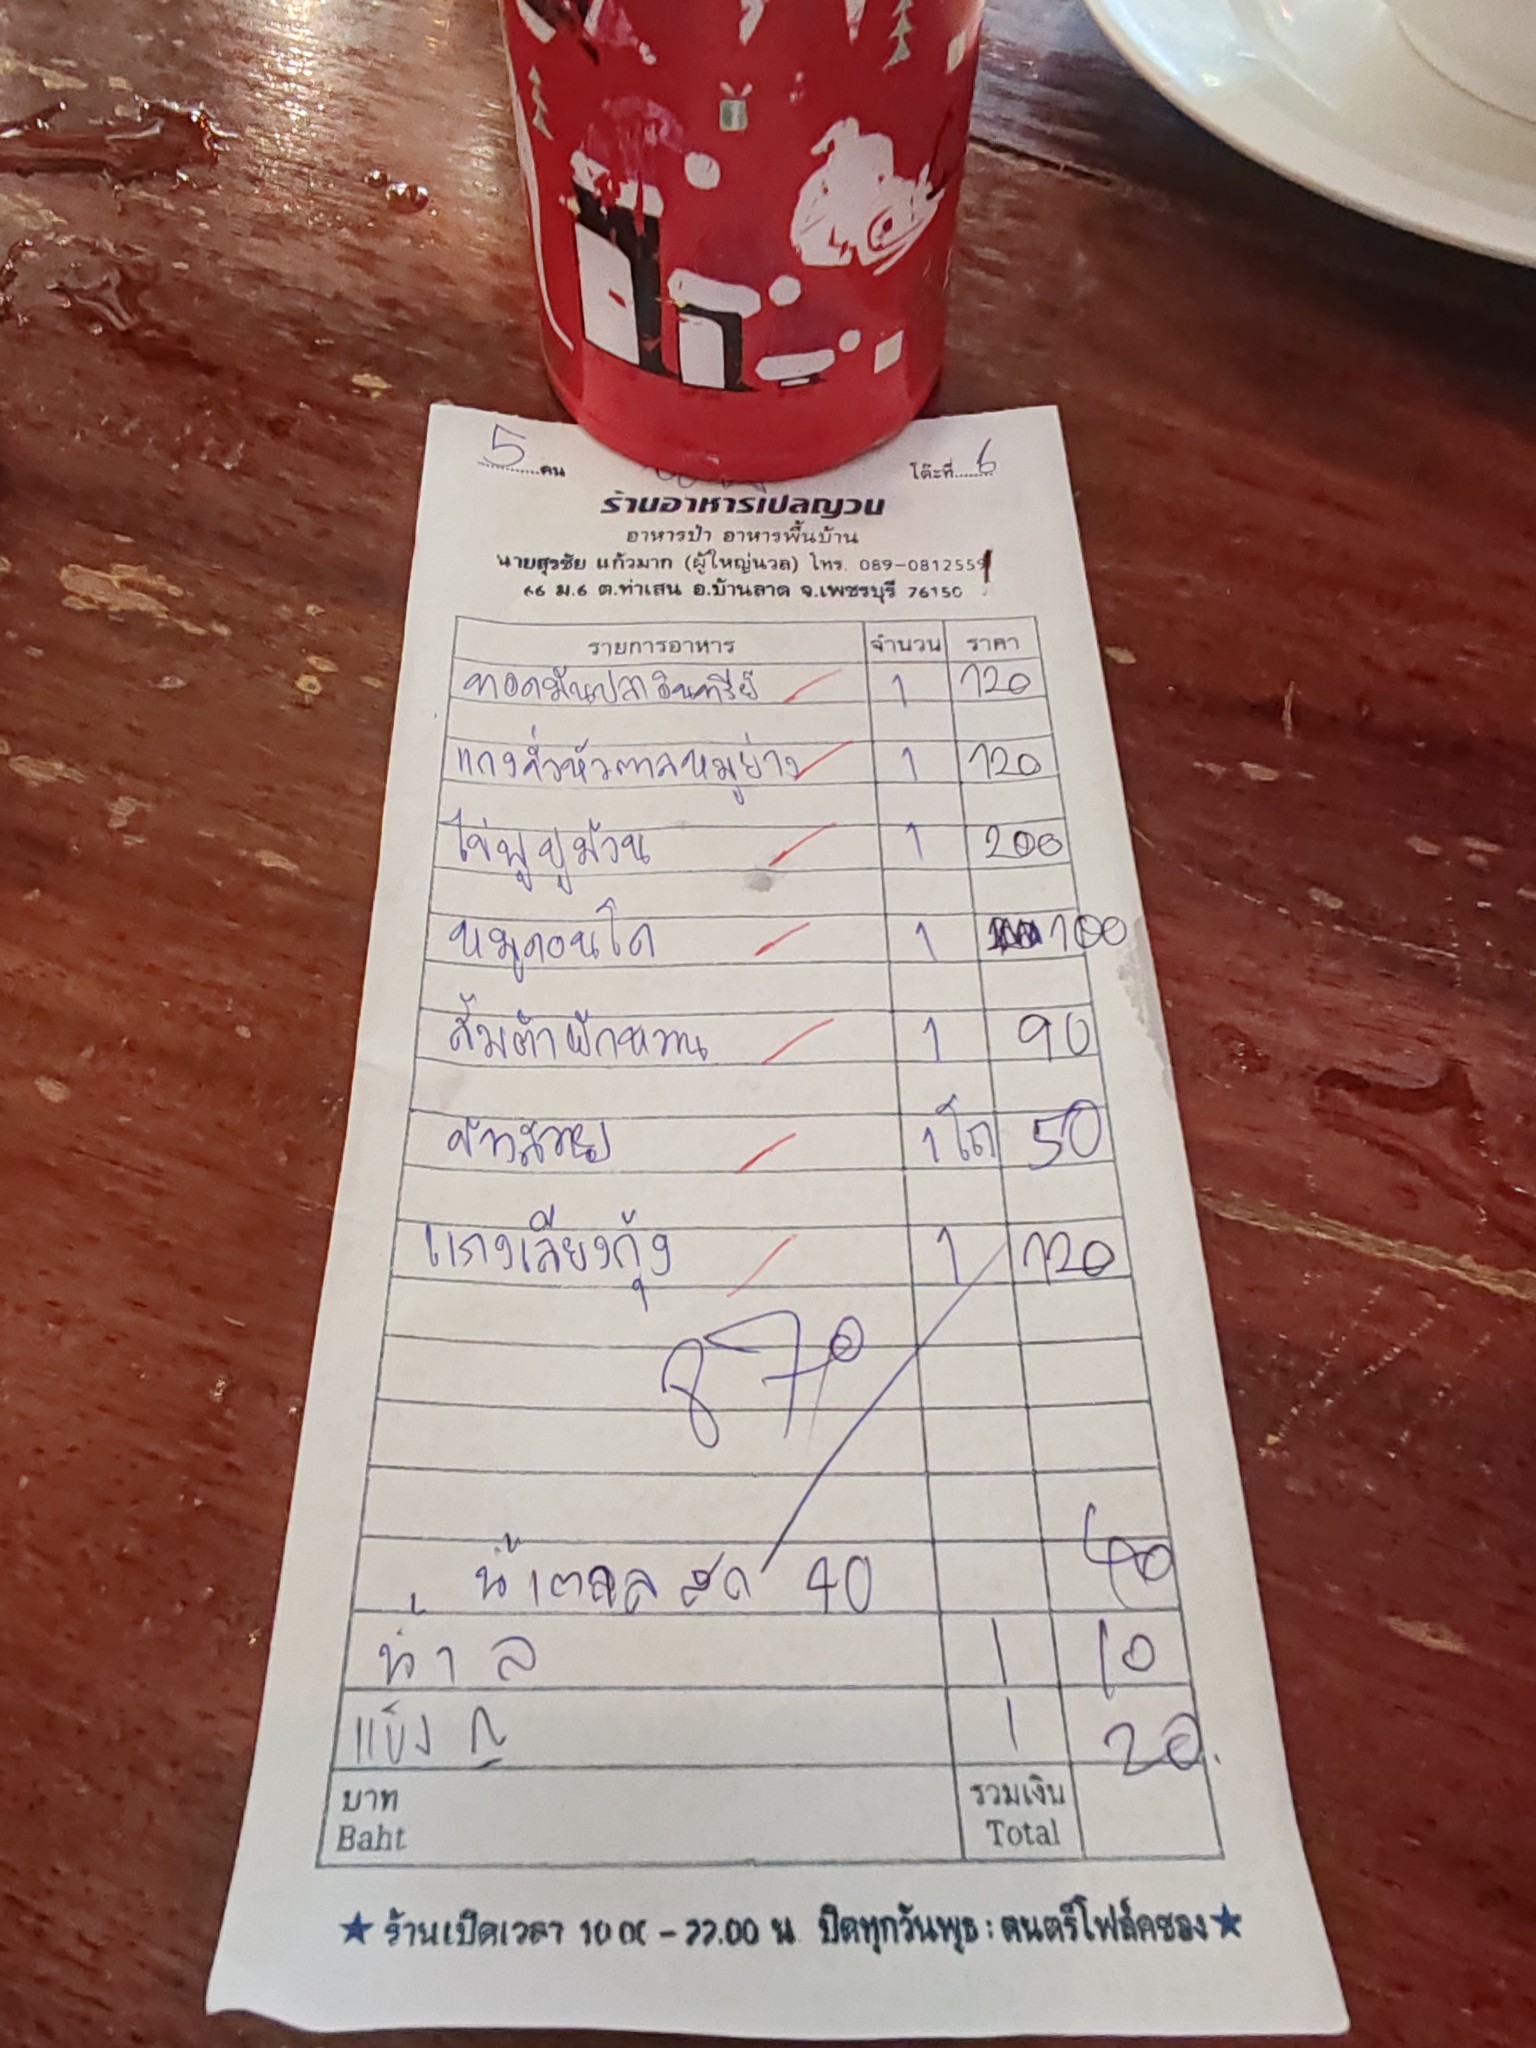 5 คน โต๊ะที่ 6
ร้านอาหารเปลญวน
อาหารป่า อาหารพื้นบ้าน
นายสุรชัย แก้วมาก (ผู้ใหญ่นวล) โทร. 089-0812559
ม.6 ต.ท่าเสน อ.บ้านลาด จ.เพชรบุรี 76150
รายการอาหาร จำนวน ราคา
ทอดมันปลาอินทรีย์ 1 120
แกงคั่วหัวตาลหมูย่าง 1 120
ไข่ฟูปูม้วน 1 200
หมูคอนโด 1 100
ส้มตำผักหวาน 1 90
ข้าวสวย 1 โถ 50
แกงเลียงกุ้ง 1 120
870
น้ำตาลสด 40 40
น้ำ ล 1 10
แข็ง ถ 1 20
บาท รวมเงิน
Baht Total
★ ร้านเปิดเวลา 10.00 - 22.00 น. ปิดทุกวันพุธ : ดนตรีโฟล์คซอง ★